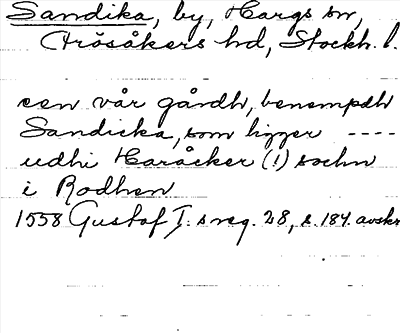 Sandika, by, Hargs sn,
Frösåkers hd, Stockh. l.
een vår gårdh, benempdh
Sandicka, som ligger ----
udhi Haråcker (!) sochn
i Rodhen
1558 Gustaf I:s reg. 28, s. 184. avskr